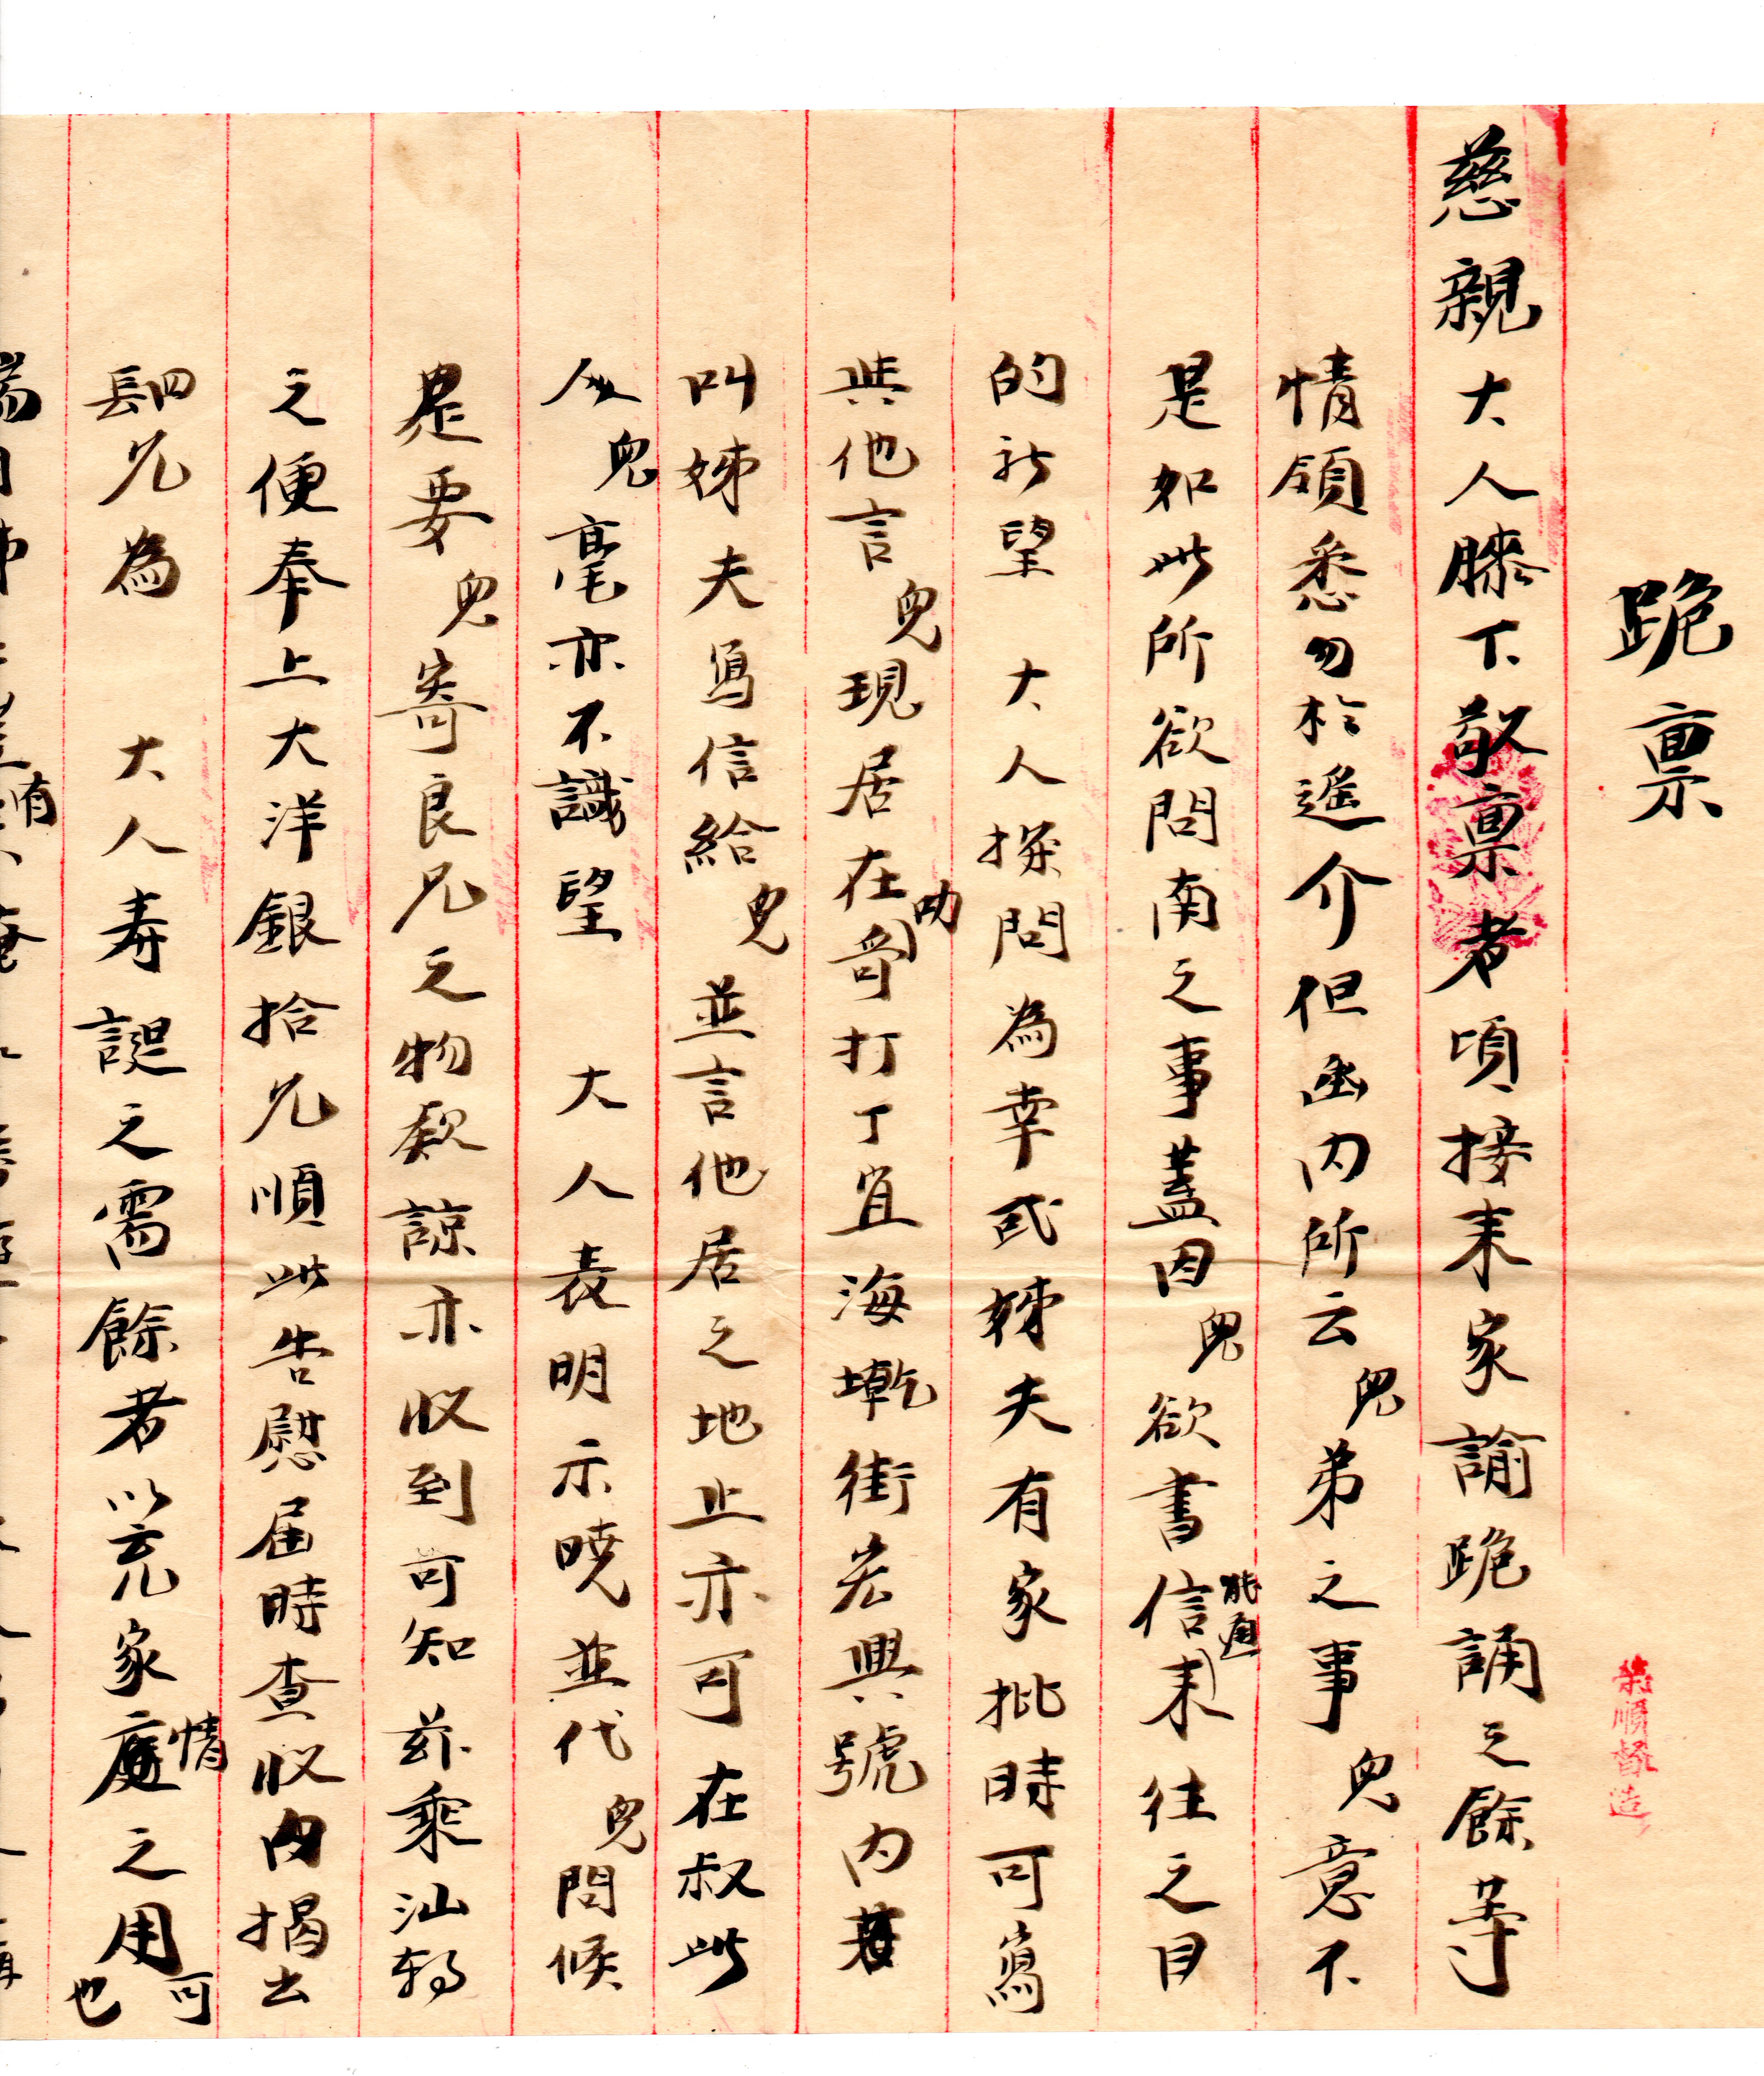 跪禀
慈親大人膝下敬禀者頃接来家諭跪誦之餘等
情領悉勿於遥介但函内所云兒弟之事兒意不
是如此所欲問南之事蓋因兒欲書信来往之目
的祈望 大人探問為幸或姊夫有家批時可寫
與他言兒現居在叻打丁宜海墘街宏興號内若
叫姊夫寫信給兒並言他居之地止亦可在叔此
人兒毫亦不識望 大人表明示曉並代兒問候
是要兒寄良兄之物款諒亦收到可知茲乘汕輪
之便奉上大洋銀拾元順此告慰届時查收内揭出
四元為 大人寿誕之需餘者以充家庭情之用可也
榮順督造